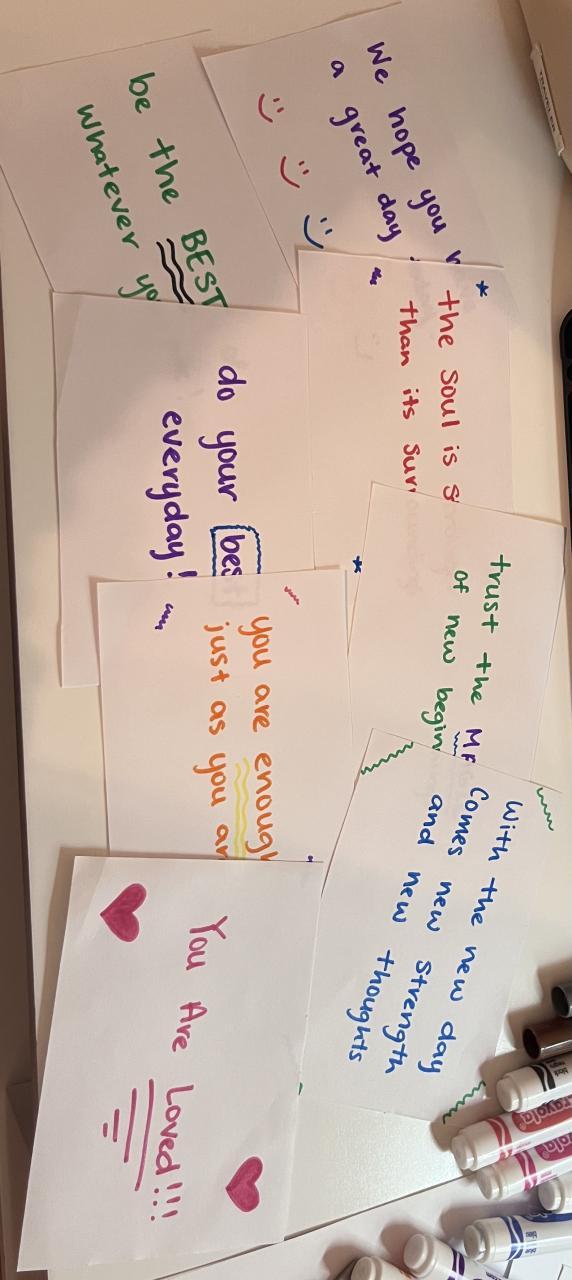 We hope you h
a great day
the soul is s
than its sur
be the BEST
whatever yo
trust the M
of new begin
do your bes
everyday!
With the new day
Comes new strength
and new thoughts
you are enough
just as you ar
You Are Loved!!!